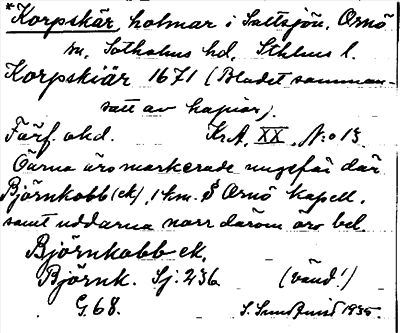 *Korpskär, holmar i Saltsjön, Ornö
sn, Sotholms hd, Sthlms l.
Korpskiär 1671 (Bladet samman-
satt av kopior).
Förf. okd. Kr.A. XX, N:o 13.
Öarna äro markerade ungefär där
Björnkobb (ek), 1 km. S Ornö kapell,
samt uddarna norr därom äro bel.
Björnkobb ek.
Björnk. Sj. 236 (vänd!)
G. 68. S. Sundquist 1935.